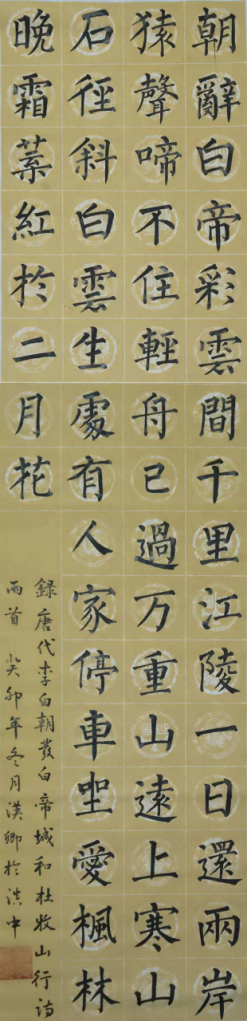 朝辭白帝彩雲間千里江陵一日還兩岸
猿聲啼不住輕舟已過万重山遠上寒山
石徑斜白雲生處有人家停車坐愛楓林
晚霜葉紅扵二月花
録唐代李白朝發白帝城和杜牧山行詩
兩首 癸卯年冬月漢卿扵洪中